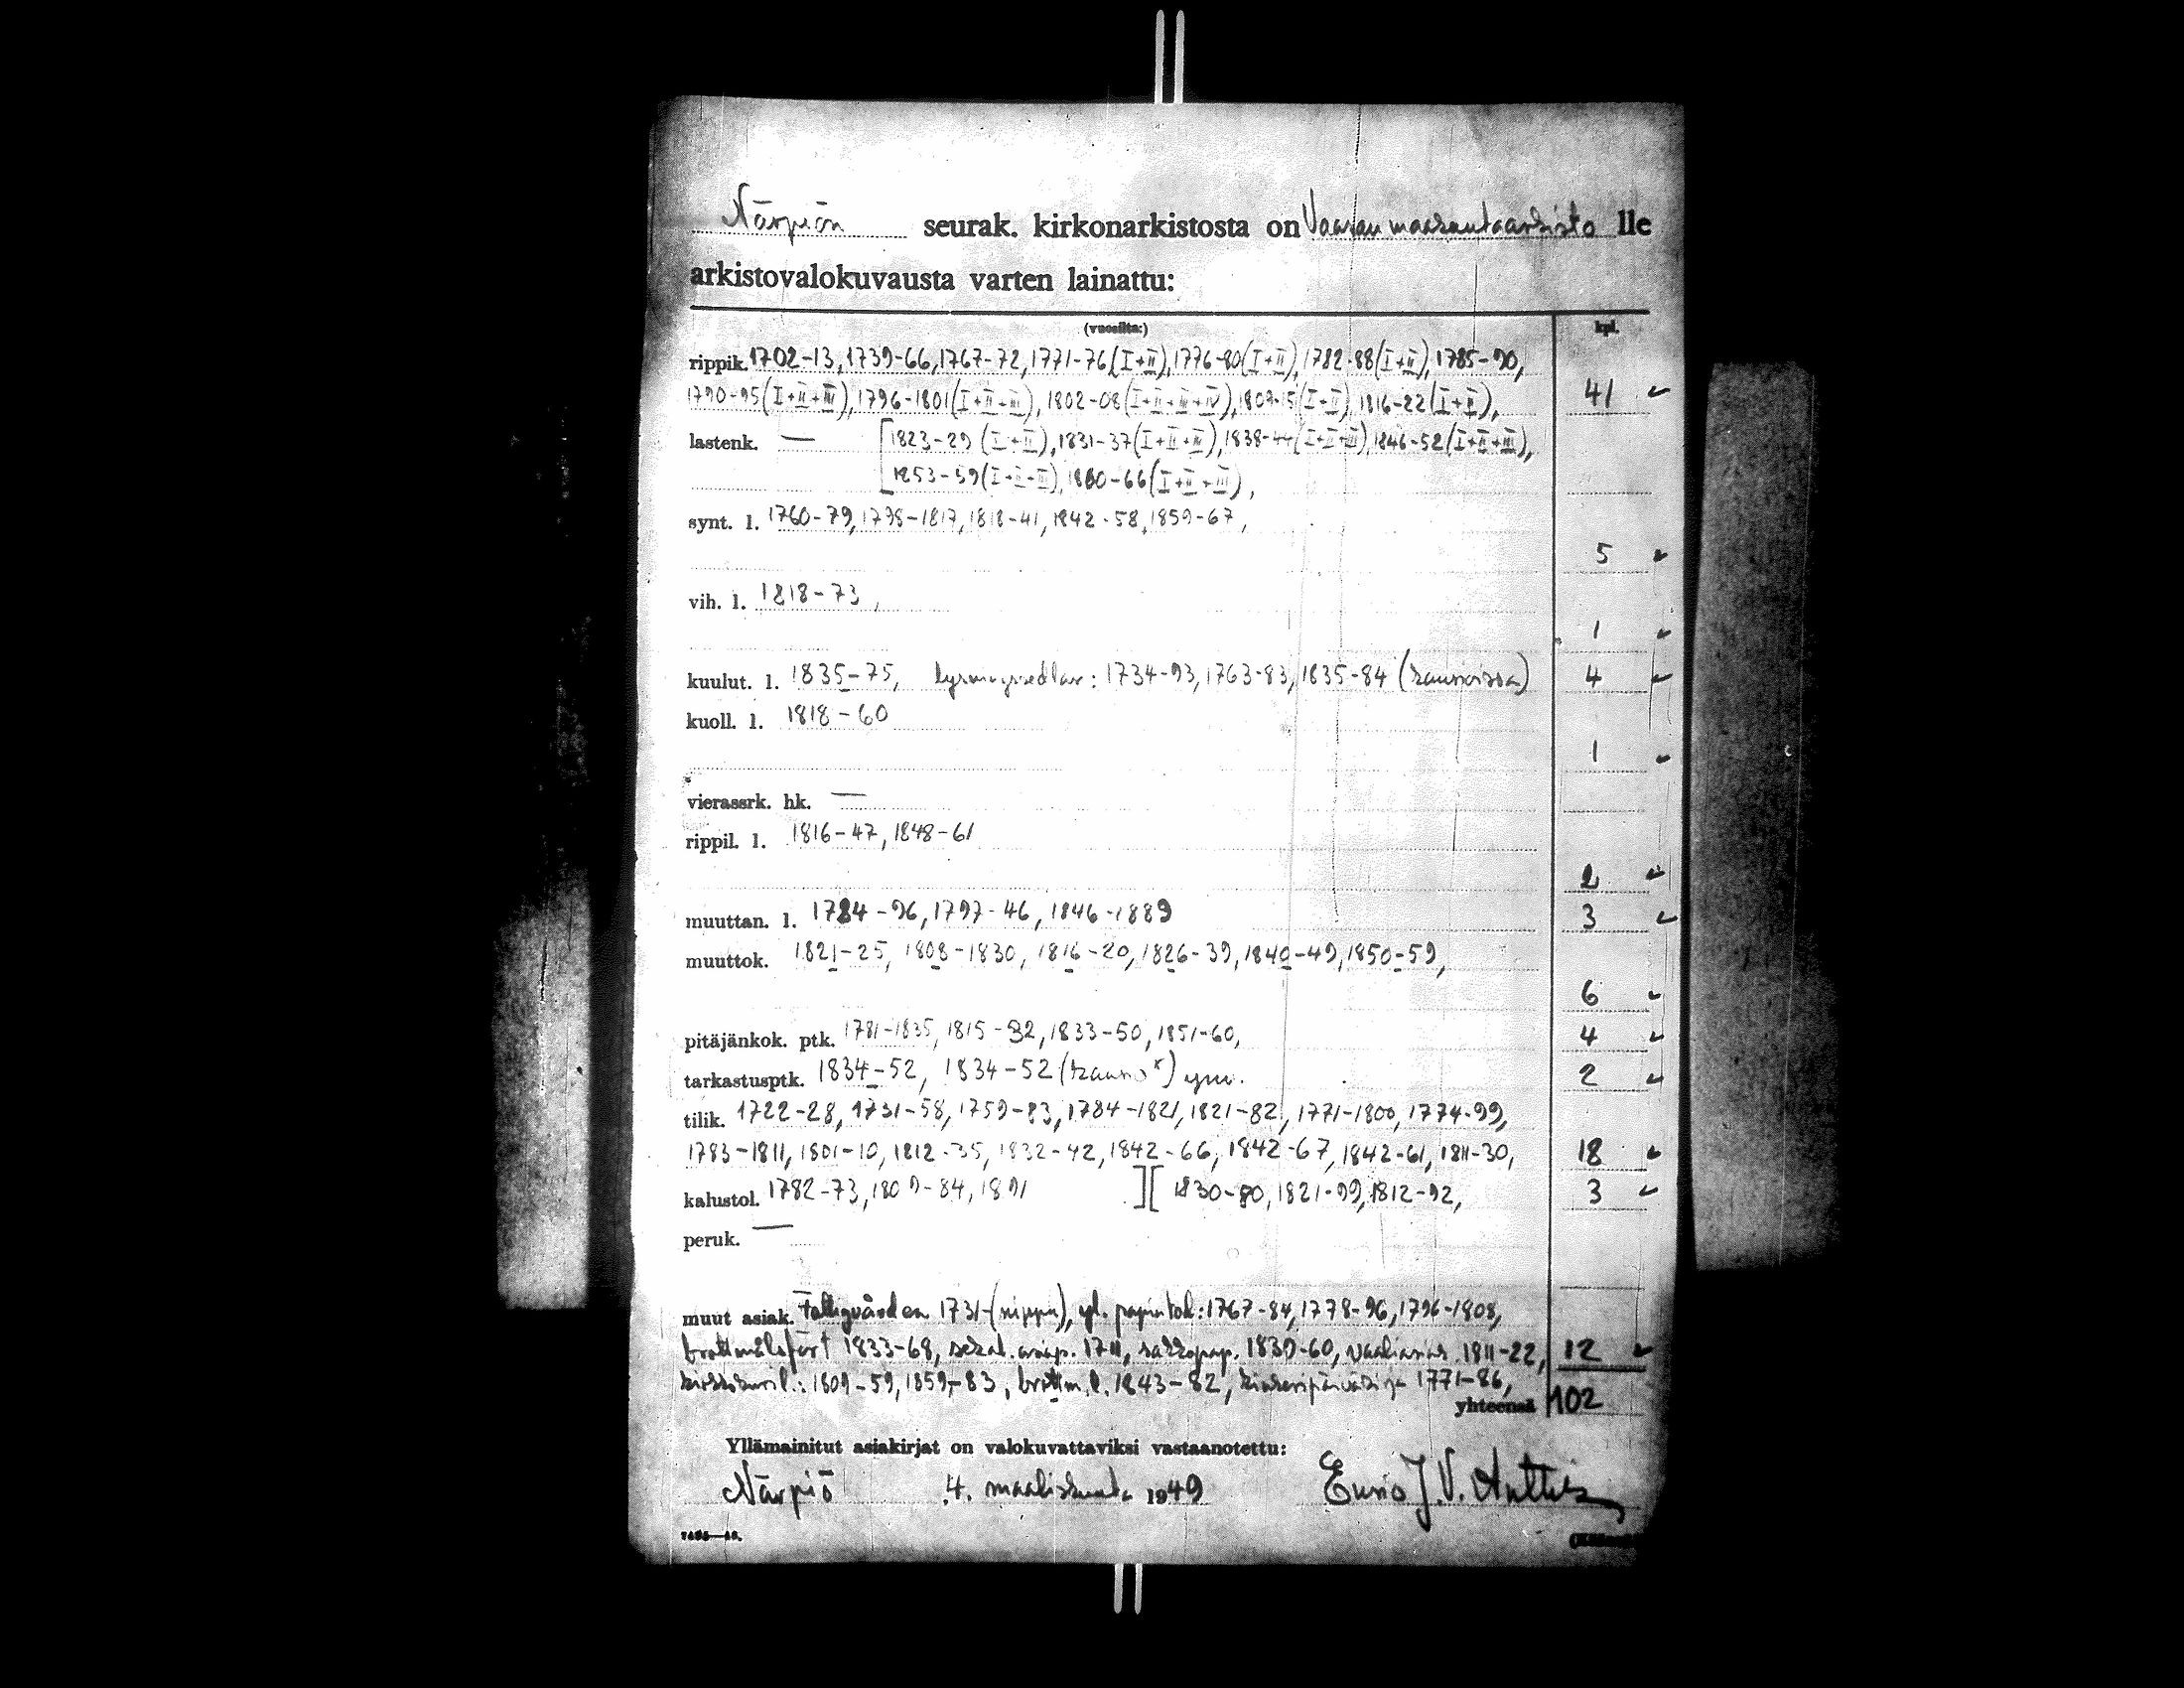 Närpiön seurak. kirkonarkistosta on Vaasan maakuntaarkisto lle
arkistovalokuvausta varten lainattu:
(vuosilta:) kpl.
rippik. 1702-13, 1739-66, 1767-72, 1771-76 (I+II), 1776-80 (I+II), 1782-88 (I+II), 1785-90,
1790-95 (I+II+III), 1796-1801 (I+II+III), 1802-08 (I+II+III+IV), 1809-15 (I+II), 1816-22 (I+II), 41
lastenk. — [1823-29 (I+II), 1831-37 (I+II+III), 1838-44 (I+II+III), 1846-52 (I+II+III),
1853-59 (I+II+III), 1860-66 (I+II+III),
synt. l. 1760-79, 1798-1817, 1818-41, 1842-58, 1859-67,
5
vih. l. 1818-73,
1
kuulut. l. 1835-75, lysningssedlar: 1734-93, 1763-83, 1835-84 (kansioissa) 4
kuoll. l. 1818-60
1
vierassrk. hk. —
rippil. l. 1816-47, 1848-61
2
muuttan. l. 1784-96, 1797-46, 1846-1889 3
muuttok. 1821-25, 1808-1830, 1816-20, 1826-39, 1840-49, 1850-59,
6
pitäjänkok. ptk. 1781-1835, 1815-32, 1833-50, 1851-60, 4
tarkastusptk. 1834-52, 1834-52 ym. 2
tilik. 1722-28, 1731-58, 1759-83, 1784-1821, 1821-82, 1771-1800, 1774-99,
1783-1811, 1801-10, 1812-35, 1832-42, 1842-66, 1842-67, 1842-61, 1811-30, 18
kalustol. 1782-73, 1809-84, 1891 ][ 1830-80, 1821-99, 1812-92, 3
peruk. —
muut asiak. Fattigvården 1731- (nippu), 1767-84, 1778-96, 1796-1808,
brottmålsfört 1833-68, sekal. asiap. 1711, sakkopap. 1839-60, 1811-22, 12
1809-59, 1859-83, brottm. l. 1843-82, 1771-86,
yhteensä 102
Yllämainitut asiakirjat on valokuvattaviksi vastaanotettu:
Närpiö 4. maaliskuuta 1949 J.V.